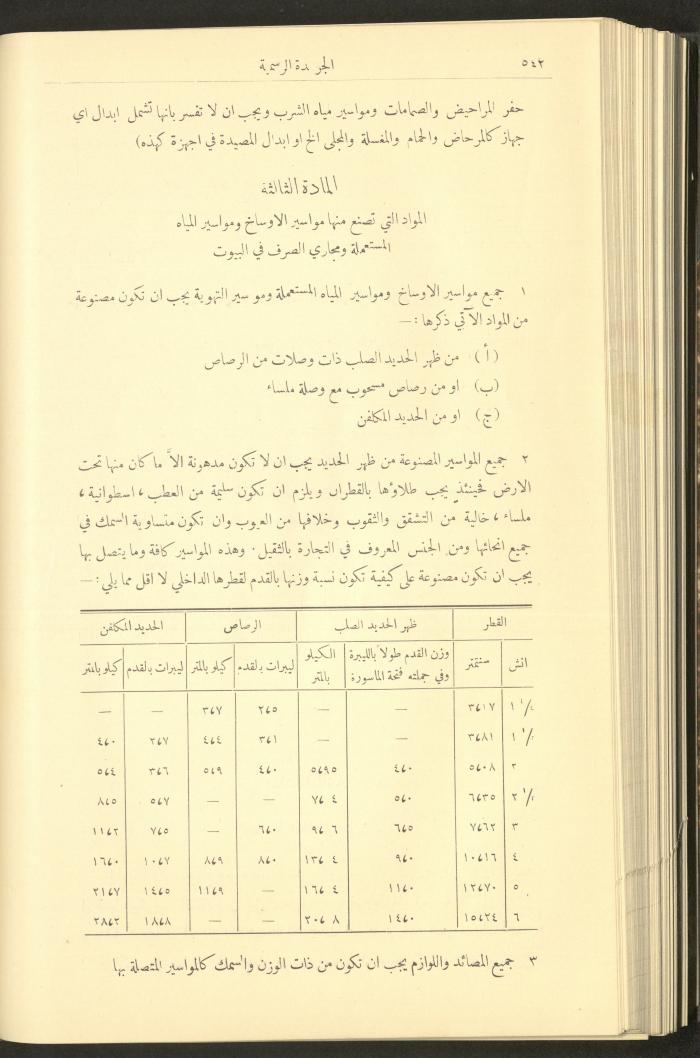 ٥٤٢ الجريدة الرسمية
حفر المراحيض والصمامات ومواسير مياه الشرب ويجب ان لا تفسر بانها تشمل ابدال اي
جهاز كالمرحاض والحمام والمغسلة والمجلى الخ او ابدال المصيدة في اجهزة كهذه)
المادة الثالثة
المواد التي تصنع منها مواسير الاوساخ ومواسير المياه
المستعملة ومجاري الصرف في البيوت
١ جميع مواسير الاوساخ ومواسير المياه المستعملة ومواسير التهوية يجب ان تكون مصنوعة
من المواد الآتي ذكرها :—
(أ) من ظهر الحديد الصلب ذات وصلات من الرصاص
(ب) او من رصاص مسحوب مع وصلة ملساء
(ج) او من الحديد المكلفن
٢ جميع المواسير المصنوعة من ظهر الحديد يجب ان لا تكون مدهونة الاَّ ما كان منها تحت
الارض فحينئذٍ يجب طلاؤها بالقطران ويلزم ان تكون سليمة من العطب ، اسطوانية ،
ملساء ، خالية من التشقق والثقوب وخلافها من العيوب وان تكون متساوية السمك في
جميع انحائها ومن الجنس المعروف في التجارة بالثقيل . وهذه المواسير كافة وما يتصل بها
يجب ان تكون مصنوعة على كيفية تكون نسبة وزنها بالقدم لقطرها الداخلي لا اقل مما يلي :—
القطر ظهر الحديد الصلب الرصاص الحديد المكلفن
انش سنتمتر وزن القدم طولاً بالليبرة وفي جملته فتحة الماسورة الكيلو بالمتر ليبرات بالقدم كيلو بالمتر ليبرات بالقدم كيلو بالمتر
١ ١/٤ ٣،١٧ — — ٢،٥ ٣،٧ — —
١ ١/٢ ٣،٨١ — — ٣،١ ٤،٤ ٢،٧ ٤،٠
٢ ٥،٠٨ ٤،٠ ٥،٩٥ ٤،٠ ٥،٩ ٣،٦ ٥،٤
٢ ١/٢ ٦،٣٥ ٥،٠ ٧،٤ — — ٥،٧ ٨،٥
٣ ٧،٦٢ ٦،٥ ٩،٦ ٦،٠ — ٧،٥ ١١،٢
٤ ١٠،١٦ ٩،٠ ١٣،٤ ٨،٠ ٨،٩ ١٠،٧ ١٦،٠
٥ ١٢،٧٠ ١١،٠ ١٦،٤ — ١١،٩ ١٤،٥ ٢١،٧
٦ ١٥،٢٤ ١٤،٠ ٢٠،٨ — — ١٨،٨ ٢٨،٢
٣ جميع المصائد واللوازم يجب ان تكون من ذات الوزن والسمك كالمواسير المتصلة بها